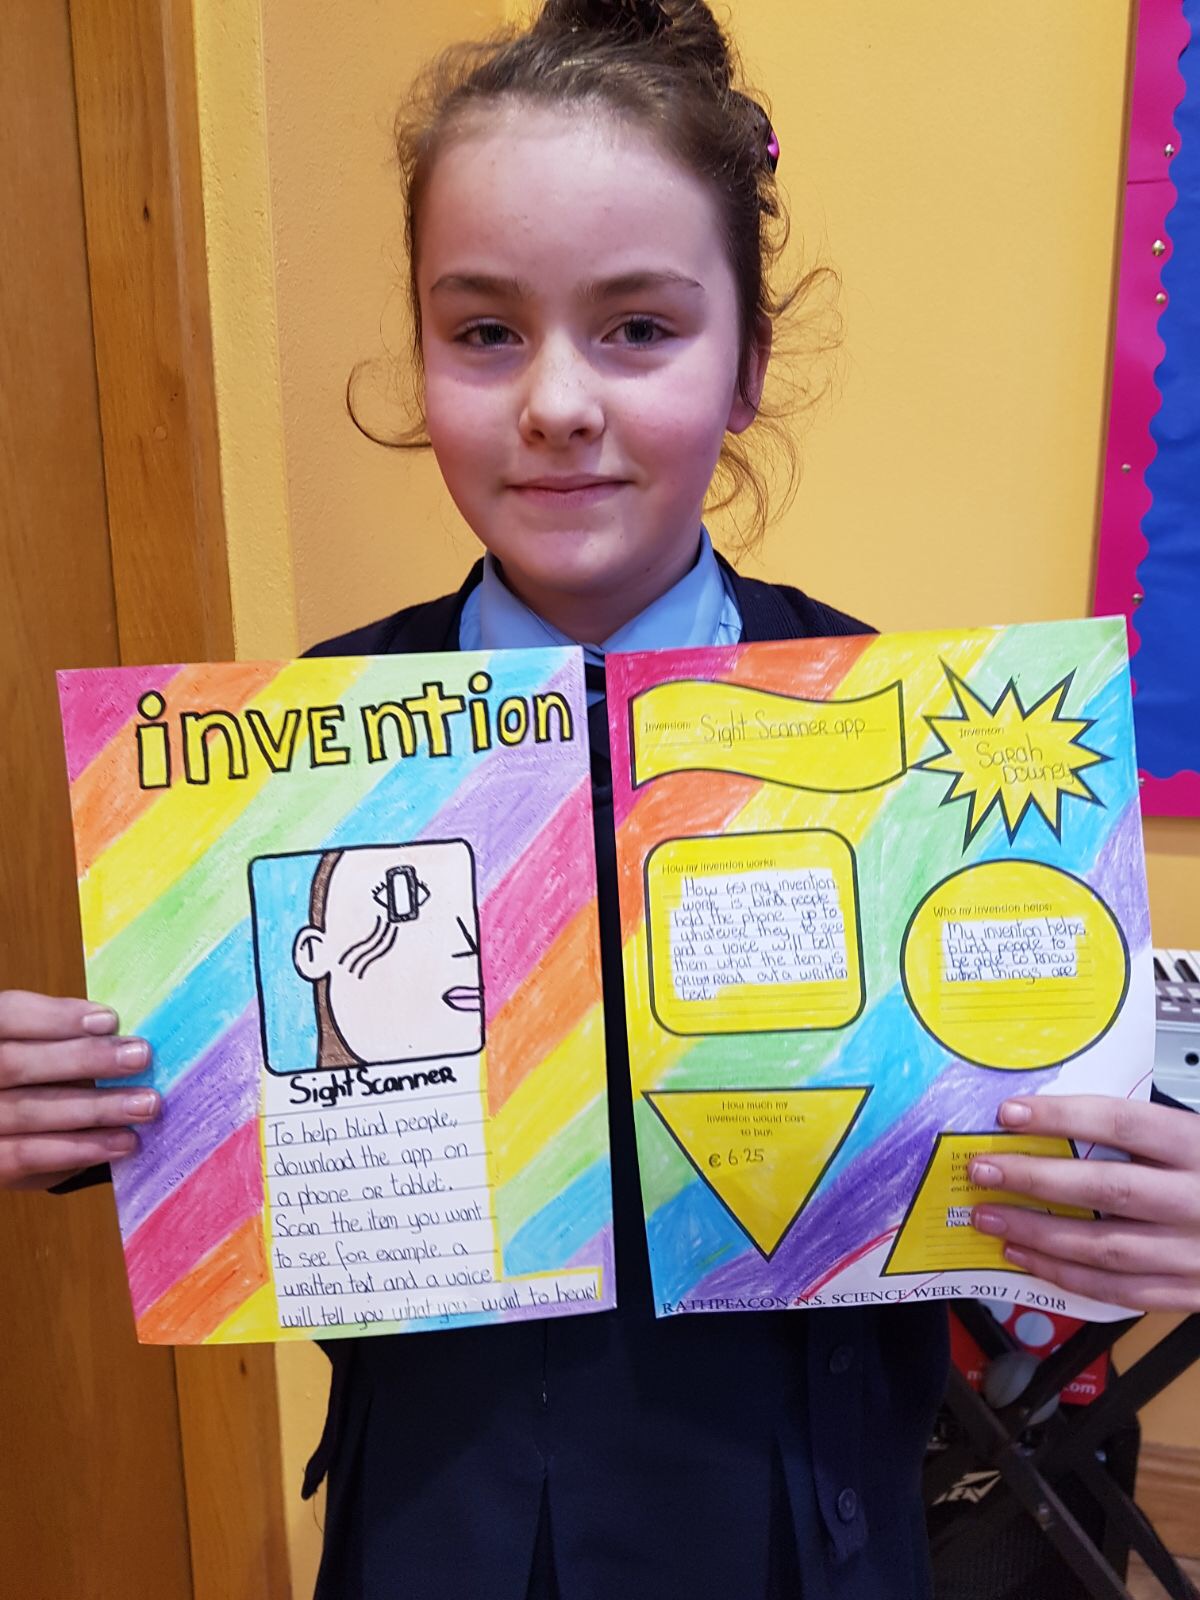 invention
Sight Scanner
To help blind people,,
download the app on
a phone or tablet.
Scan the item you want
to see for example a
written text and a voice
will tell you what you want to hear!
Invention: Sight Scanner app
Inventor:
Sarah
Downey
How my invention works:
How my invention
work is blind people
hold the phone up to
whatever they to see
and a voice will tell
them what the item is
or read out a written
text.
Who my invention helps:
My invention helps
blind people to
be able to know
what things are
How much my
invention would cost
to buy:
€ 6.25
Is this
this
new
RATHPEACON N.S. SCIENCE WEEK 2017 / 2018
.com